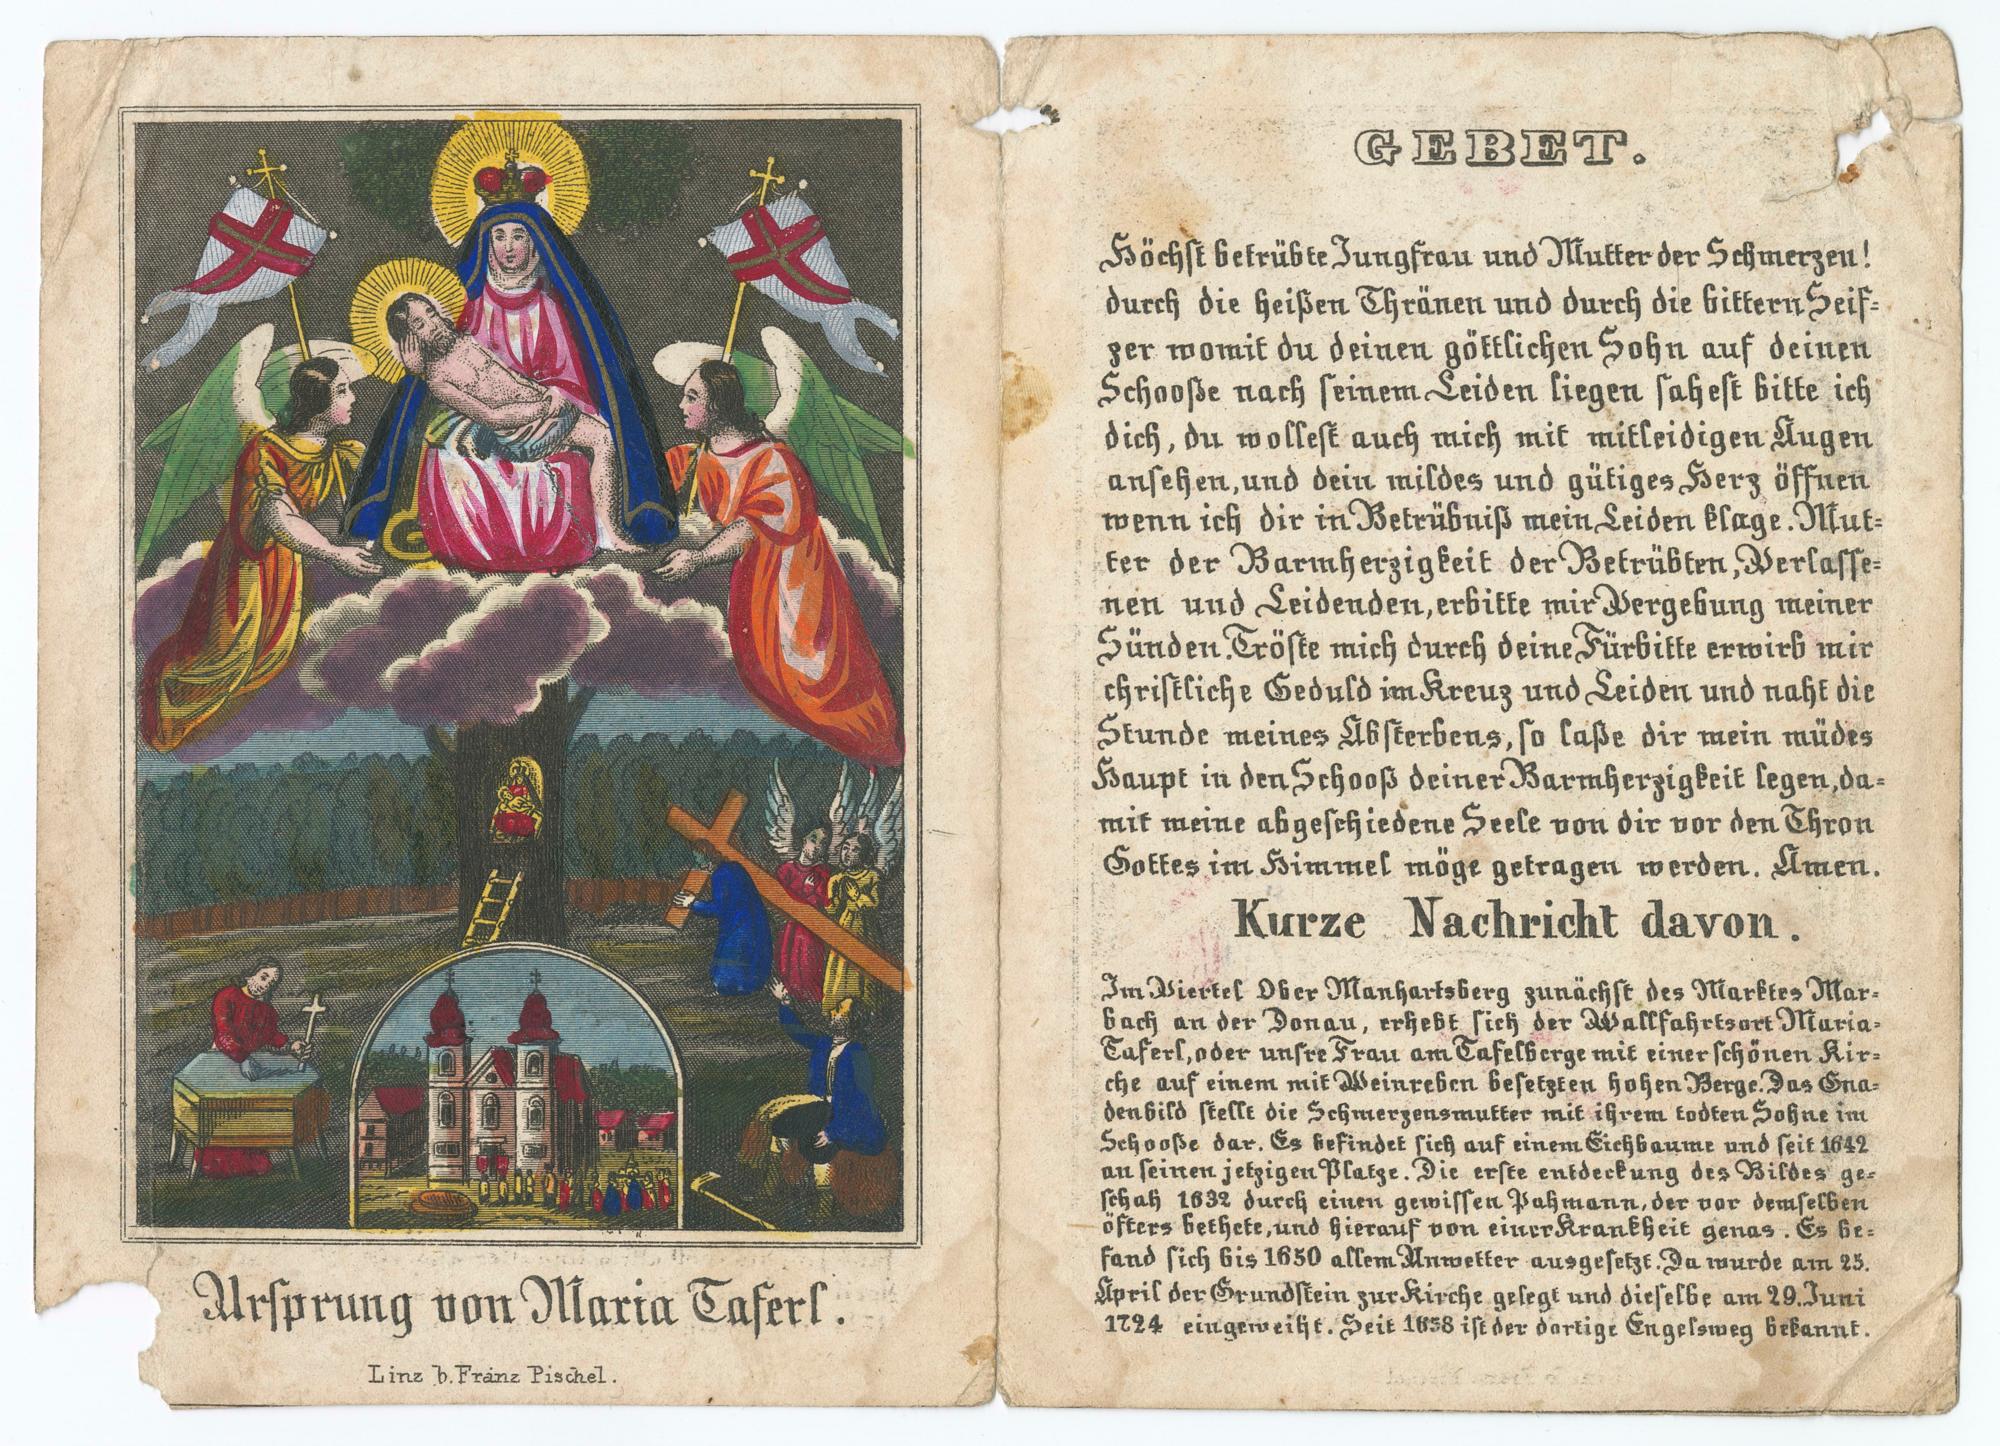 Ursprung von Maria Taferl.
Linz b. Franz Pischel.
GEBET.
Höchst betrübte Jungfrau und Mutter der Schmerzen!
durch die heißen Thränen und durch die bittern Seif=
zer womit du deinen göttlichen Sohn auf deinen
Schooße nach seinem Leiden liegen sahest bitte ich
dich, du wollest auch mich mit mitleidigen Augen
ansehen, und dein mildes und gütiges Herz öffnen
wenn ich dir in Betrübniß mein Leiden klage. Mut=
ter der Barmherzigkeit der Betrübten, Verlasse=
nen und Leidenden, erbitte mir Vergebung meiner
Sünden. Tröste mich durch deine Fürbitte erwirb mir
christliche Geduld im Kreuz und Leiden und naht die
Stunde meines Absterbens, so laße dir mein müdes
Haupt in den Schooß deiner Barmherzigkeit legen, da=
mit meine abgeschiedene Seele von dir vor den Thron
Gottes im Himmel möge getragen werden. Amen.
Kurze Nachricht davon.
Im Viertel Ober Manhartsberg zunächst des Marktes Mar=
bach an der Donau, erhebt sich der Wallfahrtsort Maria=
Taferl, oder unsre Frau am Tafelberge mit einer schönen Kir=
che auf einem mit Weinreben besetzten hohen Berge. Das Gna=
denbild stellt die Schmerzensmutter mit ihrem todten Sohne im
Schooße dar. Es befindet sich auf einem Eichbaume und seit 1642
an seinen jetzigen Platze. Die erste entdeckung des Bildes ge=
schah 1632 durch einen gewissen Pahmann, der vor demselben
öfters bethete, und hierauf von einer Krankheit genas. Es be=
fand sich bis 1650 allem Unwetter ausgesetzt. Da wurde am 25.
April der Grundstein zur Kirche gelegt und dieselbe am 29. Juni
1724 eingeweiht. Seit 1658 ist der dortige Engelsweg bekannt.